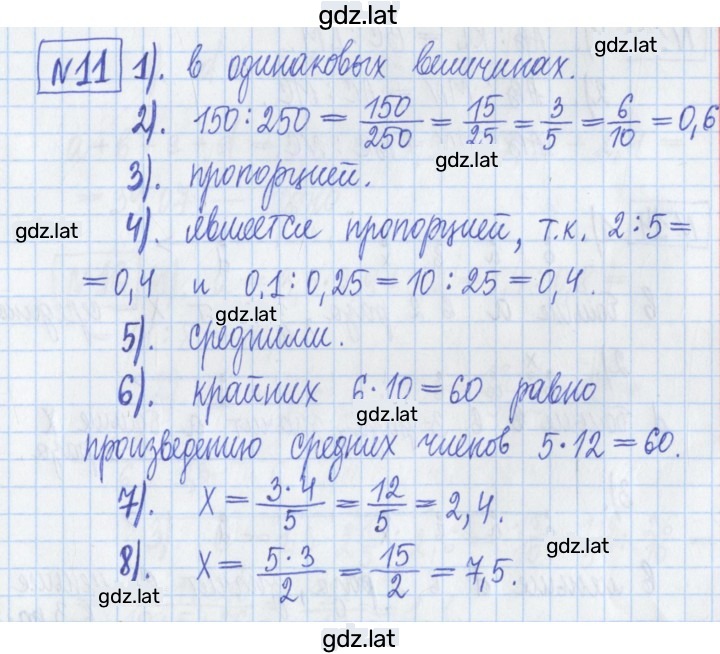 gdz.lat
№11 1). в одинаковых величинах.
gdz.lat
2). 150 : 250 = 150/250 = 15/25 = 3/5 = 6/10 = 0,6
gdz.lat
3). пропорцией.
gdz.lat
4). является пропорцией, т.к. 2 : 5 =
= 0,4 и 0,1 : 0,25 = 10 : 25 = 0,4.
gdz.lat
5). средними.
6). крайних 6·10 = 60 равно
gdz.lat
произведению средних членов 5·12 = 60.
7). X = 3·4/5 = 12/5 = 2,4.
gdz.lat
8). X = 5·3/2 = 15/2 = 7,5.
gdz.lat
gdz.lat